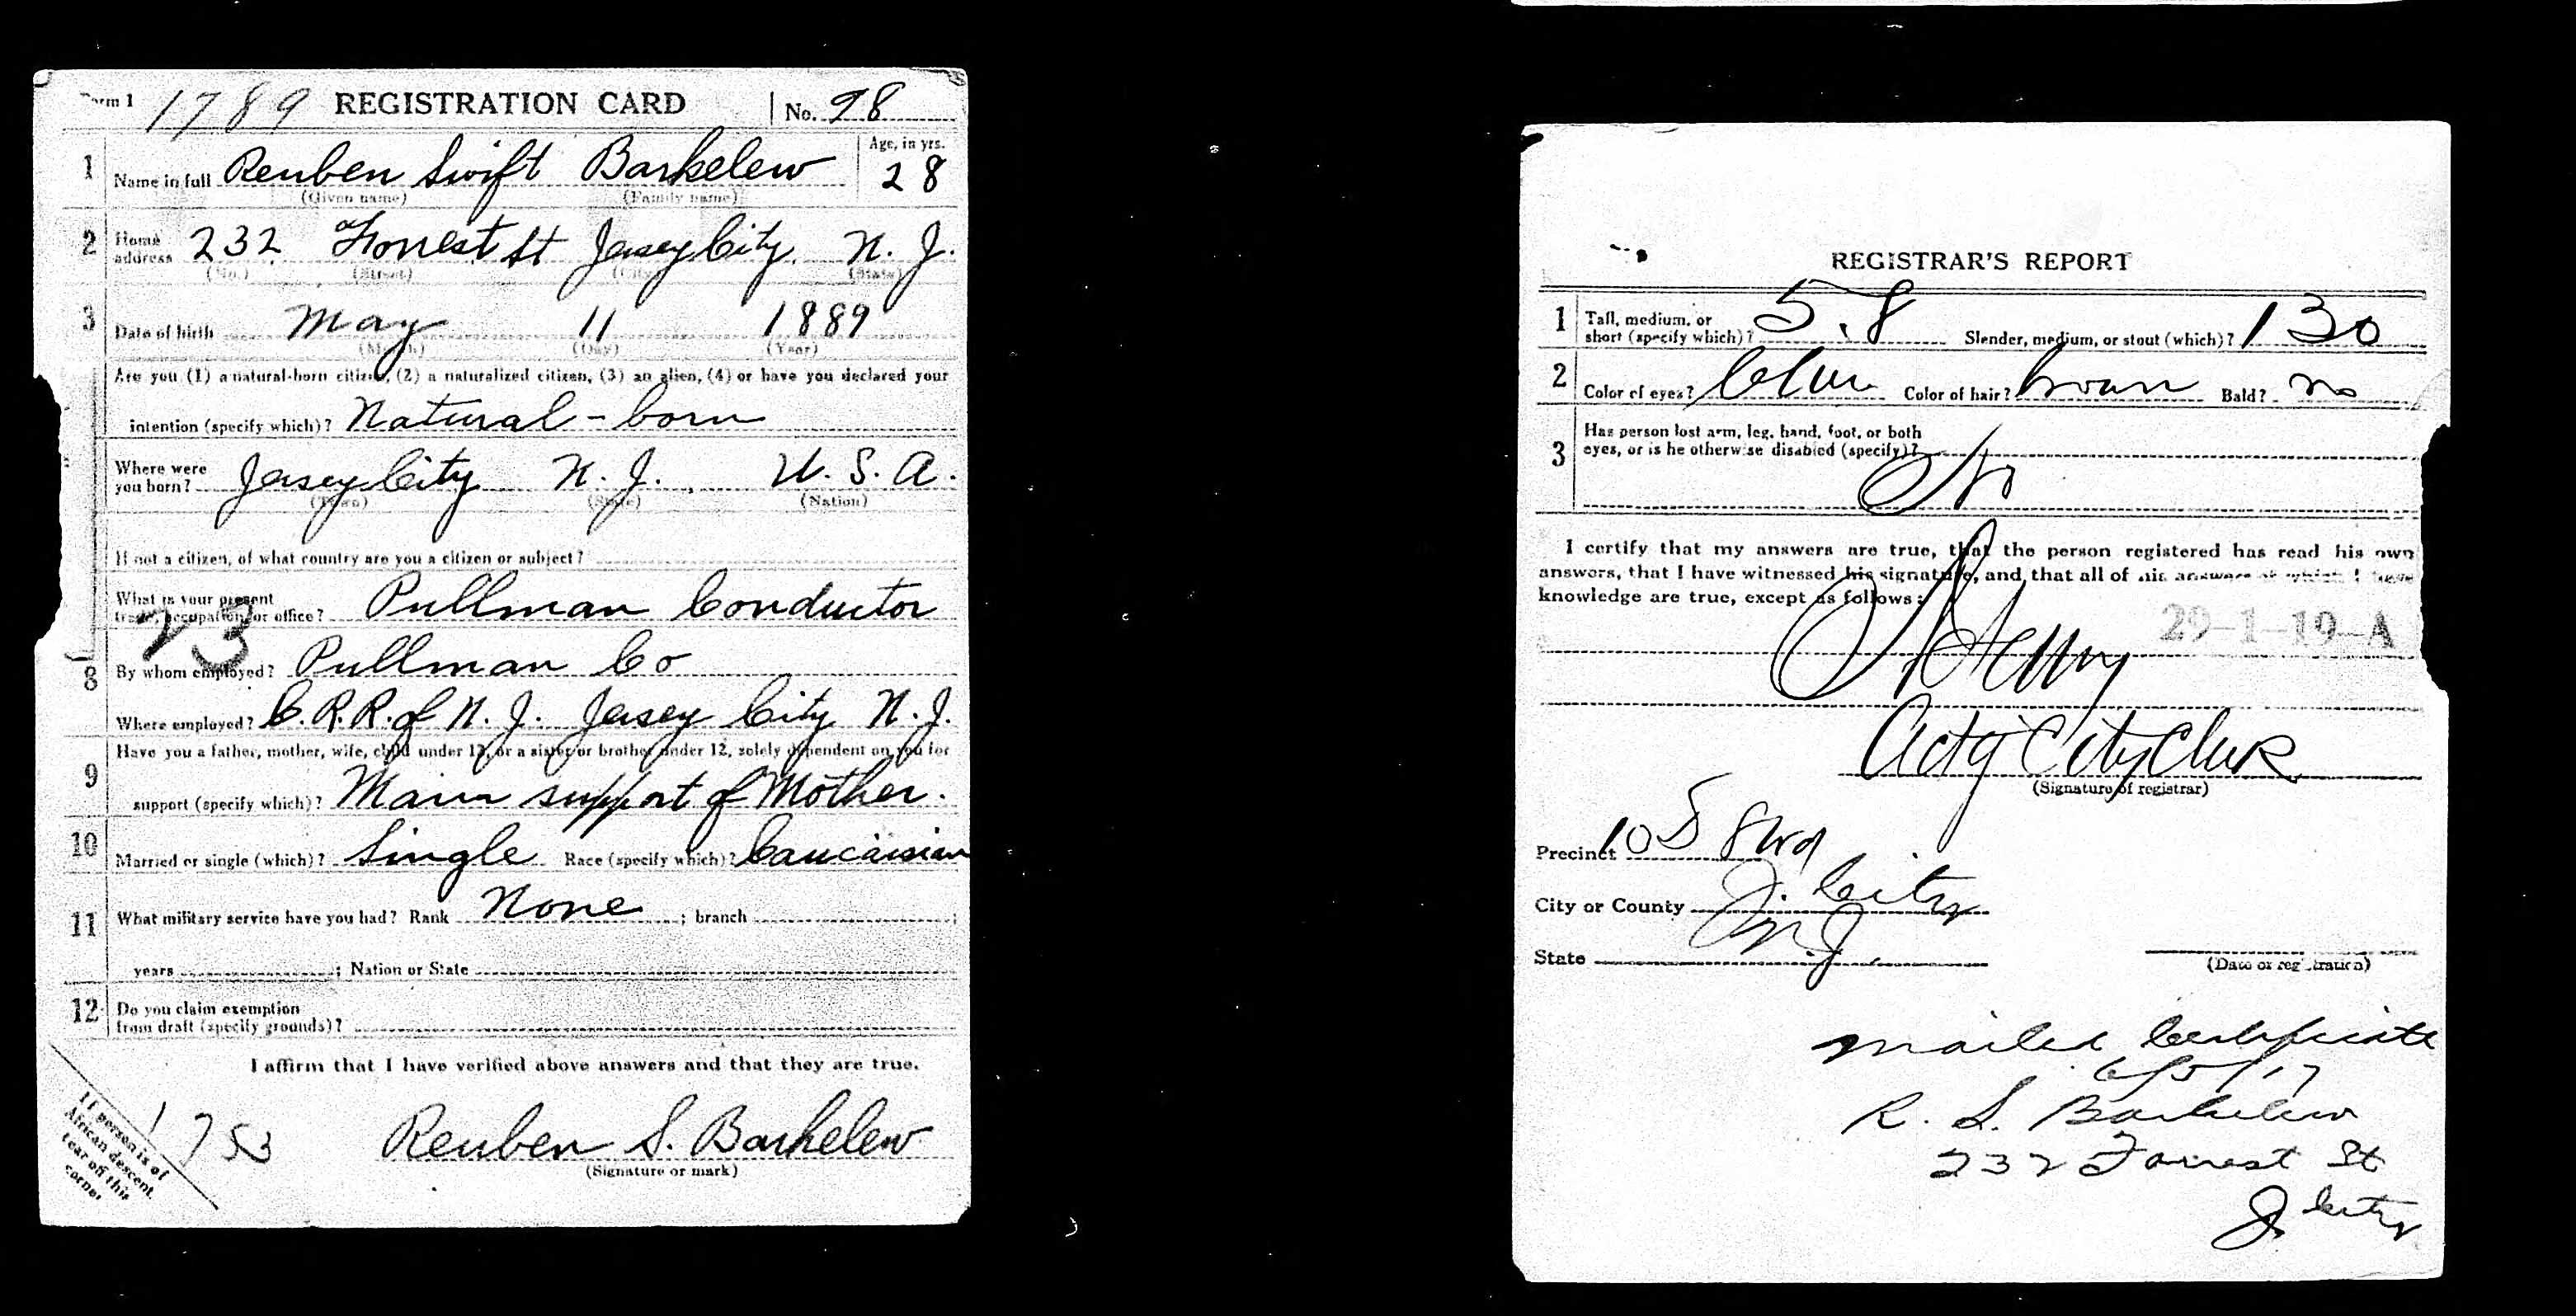 Form 1 1789 REGISTRATION CARD No. 98
1 Name in full Reuben Swift Barkelew Age, in yrs. 28
(Given name) (Family name)
2 Home address 232 Forrest St Jersey City N. J.
(No.) (Street) (City) (State)
3 Date of birth May 11 1889
(Month) (Day) (Year)
Are you (1) a natural-born citizen, (2) a naturalized citizen, (3) an alien, (4) or have you declared your
intention (specify which)? Natural-born
Where were you born? Jersey City N. J. U. S. A.
(Town) (State) (Nation)
If not a citizen, of what country are you a citizen or subject?
What is your present trade, occupation, or office? Pullman Conductor
23
8 By whom employed? Pullman Co
Where employed? C. R.R. of N. J. Jersey City N. J.
9 Have you a father, mother, wife, child under 12, or a sister or brother under 12, solely dependent on you for
support (specify which)? Main support of Mother.
10 Married or single (which)? Single Race (specify which)? Caucaisian
11 What military service have you had? Rank None ; branch ;
years ; Nation or State
12 Do you claim exemption
from draft (specify grounds)?
I affirm that I have verified above answers and that they are true.
1753 Reuben S. Barkelew
(Signature or mark)
If person is of
African descent,
tear off this
corner
REGISTRAR'S REPORT
1 Tall, medium, or short (specify which)? 5.8 Slender, medium, or stout (which)? 130
2 Color of eyes? blue Color of hair? brown Bald? no
3 Has person lost arm, leg, hand, foot, or both
eyes, or is he otherwise disabled (specify)? No
I certify that my answers are true, that the person registered has read his own
answers, that I have witnessed his signature, and that all of his answers of which I have
knowledge are true, except as follows:
29-1-19-A
Actg City Clerk
(Signature of registrar)
Precinct 10 5 8 Wd
City or County J. City
State N.J.
(Date of registration)
Mailed Certificate
6/5/17
R. S. Barkelew
232 Forrest St
J City